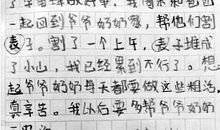 一起回到爷爷奶奶家，帮他们割
麦子。割了一个上午，麦子堆成
了小山，我已经累到不行了。想
起爷爷奶奶每天都要做这些粗活
真辛苦。我以后要多帮爷爷奶奶